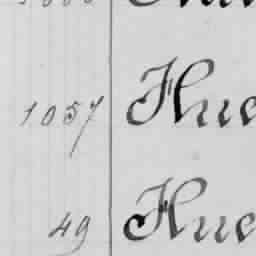 1057 Hue
49 Hue